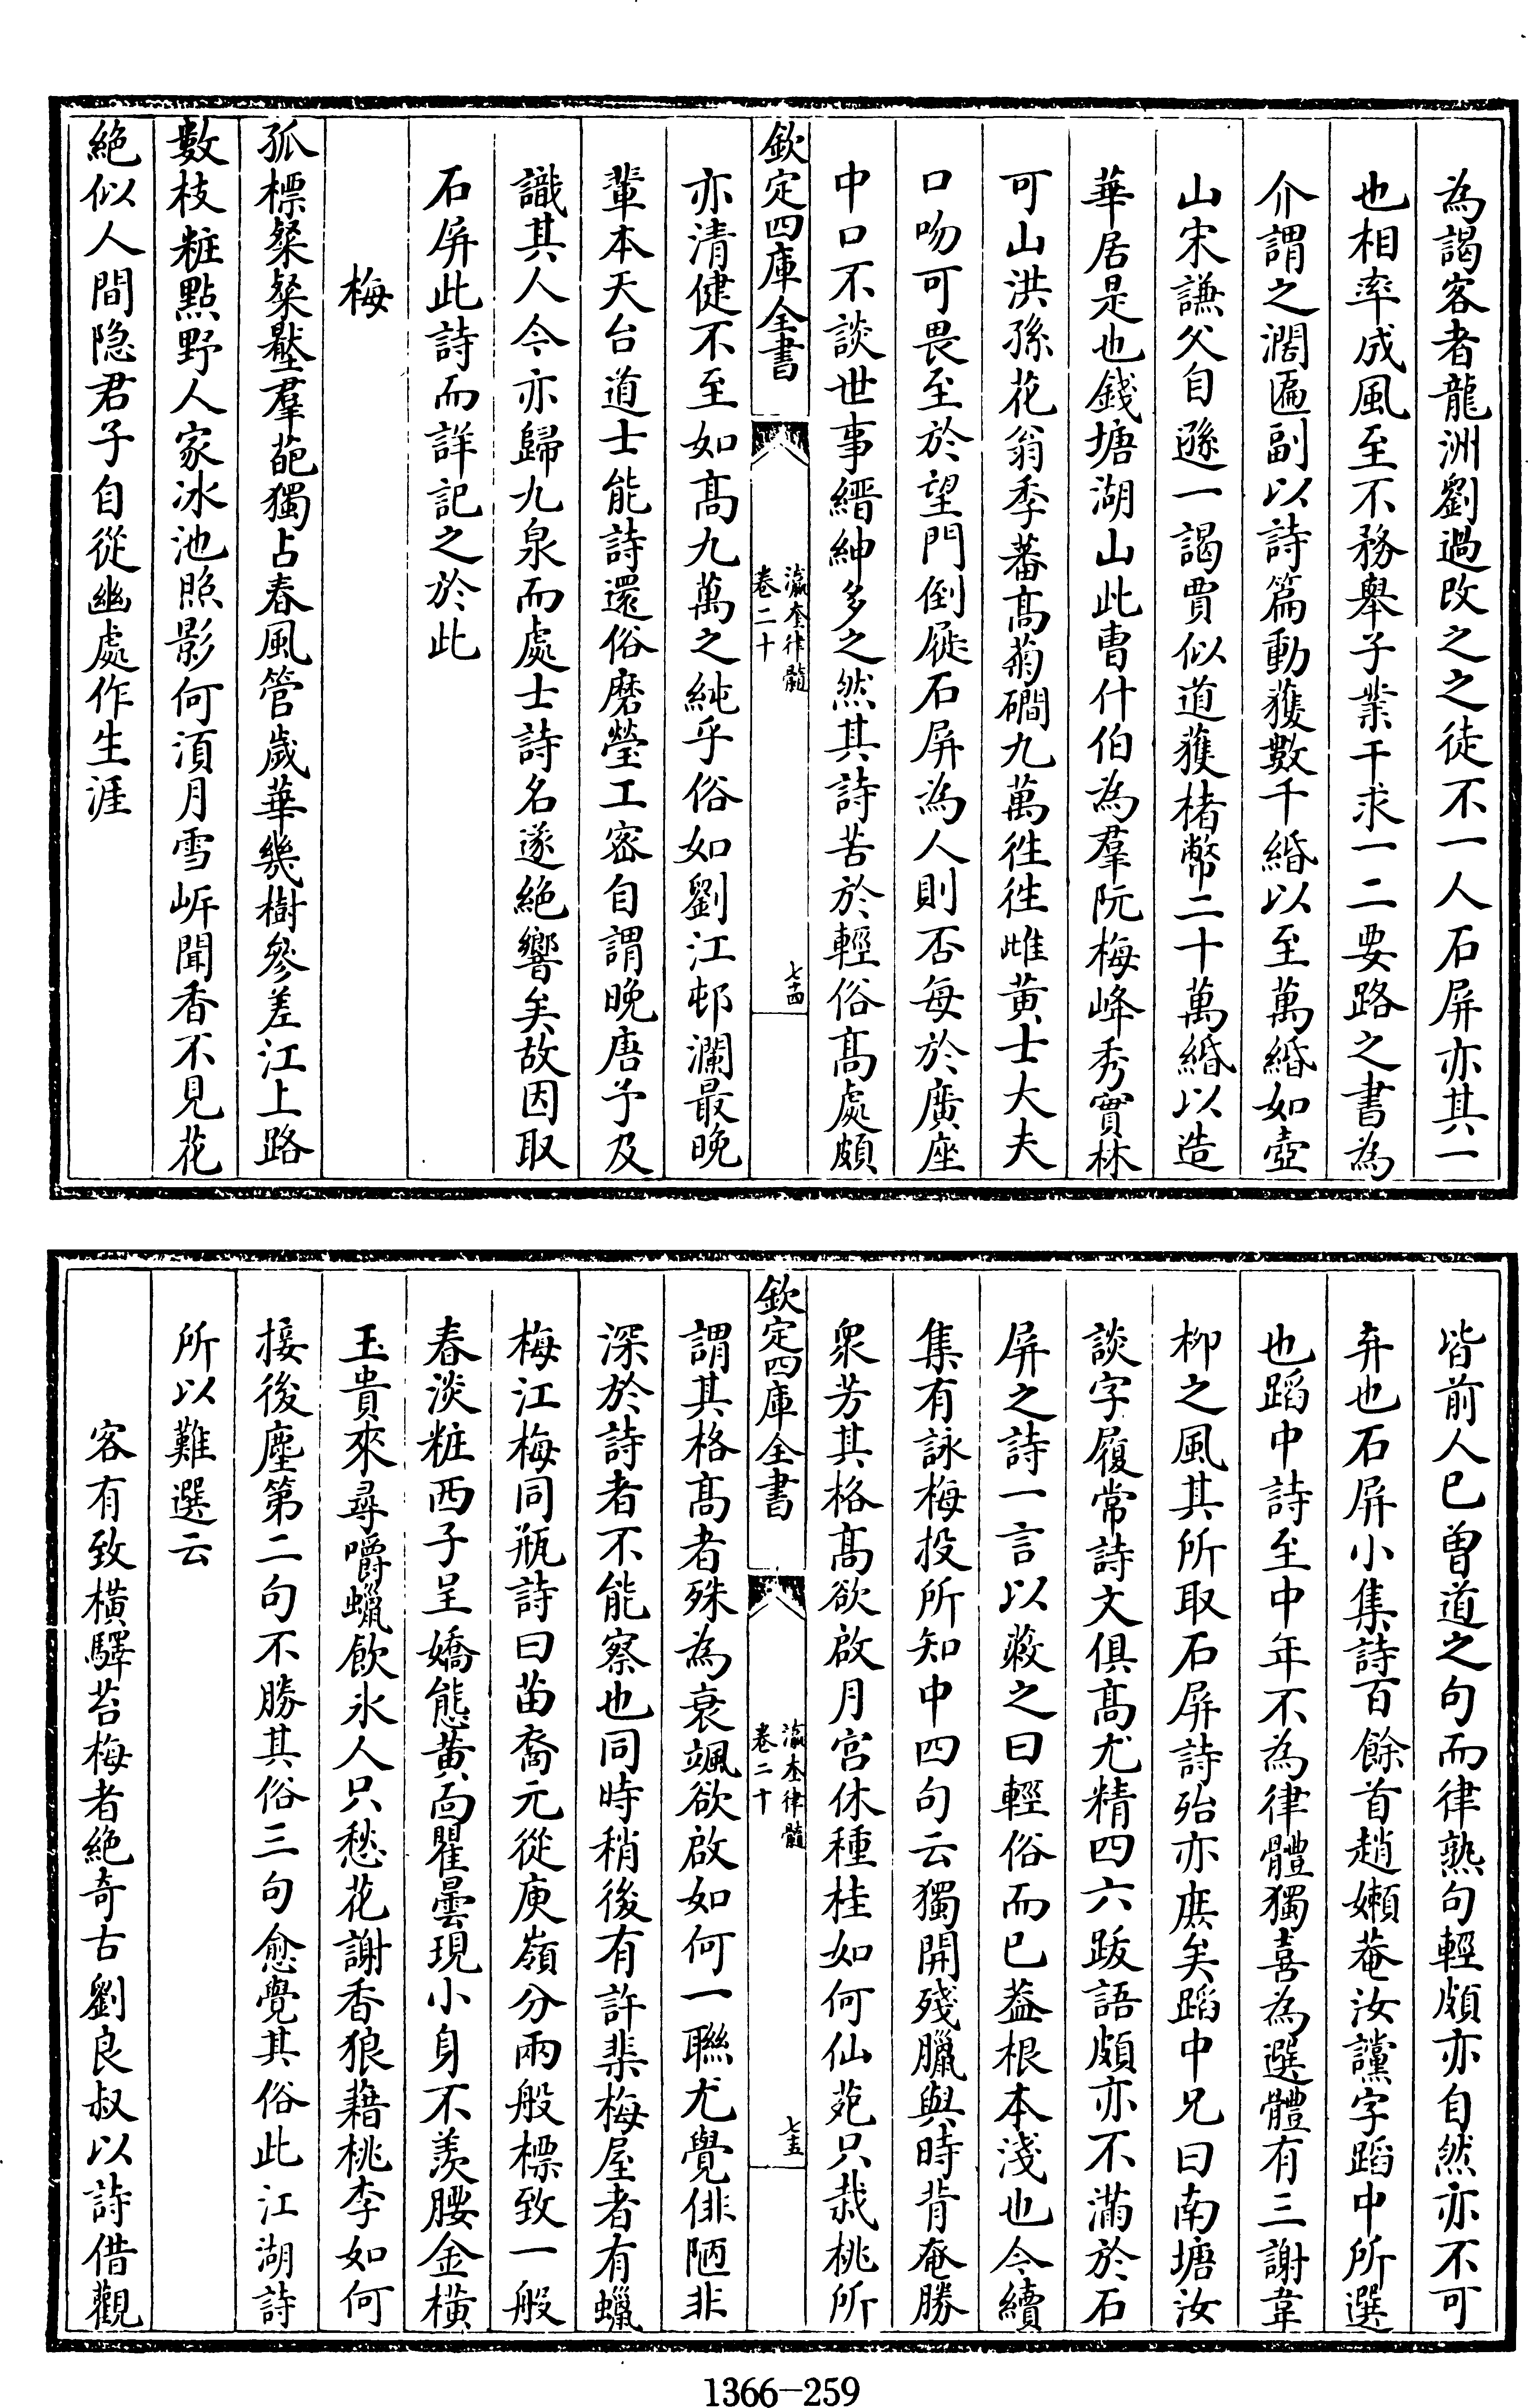 為謁客者龍洲劉過改之之徒不一人石屏亦其一
也相率成風至不務舉子業干求一二要路之書為
介謂之濶匾副以詩篇動獲數千緡以至萬緡如壺
山宋謙父自遜一謁賈似道獲楮幣二十萬緡以造
華居是也錢塘湖山此曹什伯為羣阮梅峰秀實林
可山洪孫花翁季蕃髙菊磵九萬徃徃雌黄士大夫
口吻可畏至於望門倒屣石屏為人則否每於廣座
中口不談世事縉紳多之然其詩苦於輕俗髙處頗
欽定四庫全書
瀛奎律髓
卷二十
七十四
亦清健不至如髙九萬之純乎俗如劉江邨瀾最晚
輩本天台道士能詩還俗磨瑩工密自謂晚唐予及
識其人今亦歸九泉而處士詩名遂絶響矣故因取
石屏此詩而詳記之於此
梅
孤標粲粲壓羣葩獨占春風管歲華幾樹參差江上路
數枝粧點野人家冰池照影何湏月雪岸聞香不見花
絶似人間隐君子自從幽處作生涯
皆前人已曽道之句而律熟句輕頗亦自然亦不可
弃也石屏小集詩百餘首趙嬾菴汝讜字蹈中所選
也蹈中詩至中年不為律體獨喜為選體有三謝韋
柳之風其所取石屏詩殆亦庶矣蹈中兄曰南塘汝
談字履常詩文俱髙尤精四六跋語頗亦不滿於石
屏之詩一言以蔽之曰輕俗而已葢根本淺也今續
集有詠梅投所知中四句云獨開殘臘與時背奄勝
衆芳其格髙欲啟月宫休種桂如何仙苑只栽桃所
欽定四庫全書
瀛奎律髓
卷二十
七十五
謂其格髙者殊為衰颯欲啟如何一聯尤覺俳陋非
深於詩者不能察也同時稍後有許棐梅屋者有蠟
梅江梅同瓶詩曰苗裔元從庾嶺分兩般標致一般
春淡粧西子呈嬌態黄面瞿曇現小身不羡腰金横
玉貴來尋嚼蠟飲氷人只愁花謝香狼藉桃李如何
接後塵第二句不勝其俗三句愈覺其俗此江湖詩
所以難選云
客有致横驛苔梅者絶奇古劉良叔以詩借觀
1366-259